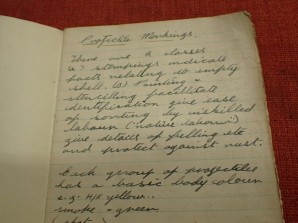 Projectile Markings.
There are 2 classes
(a) stampings indicate
facts relating to empty
shell. (b) Painting &
stencilling facilitate
identification give ease
of sorting by unskilled
labour (native labour)
give details of filling etc
and protect against rust.
Each group of projectiles
has a basic body colour
e.g. H/E yellow..
smoke = green
shot